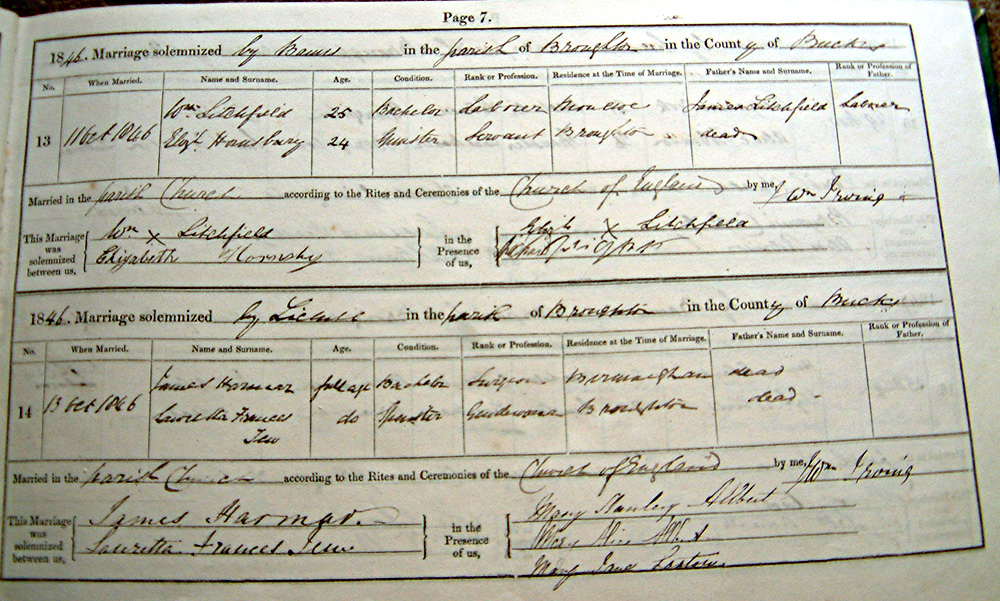 Page 7.
1846. Marriage solemnized by Banns in the parish of Broughton in the County of Bucks
No. When Married. Name and Surname. Age. Condition. Rank or Profession. Residence at the Time of Marriage. Father's Name and Surname. Rank or Profession of Father.
Wm Litchfield 25 Bachelor Laborer James Litchfield Laborer
13 11 Oct 1846 Elizt. 24 Spinster Servant Broughton dead
Married in the parish Church according to the Rites and Ceremonies of the Church of England by me, Wm Irving
This Marriage was solemnized between us, Wm X Litchfield in the Presence of us, X Litchfield
Elizabeth Hornsby
1846. Marriage solemnized by License in the parish of Broughton in the County of Bucks
No. When Married. Name and Surname. Age. Condition. Rank or Profession. Residence at the Time of Marriage. Father's Name and Surname. Rank or Profession of Father.
James Harmar full age Bachelor Surgeon Birmingham dead
14 13 Oct 1846 Lauretta Frances do Spinster Gentlewoman Broughton dead
Tew
Married in the parish Church according to the Rites and Ceremonies of the Church of England by me, Wm Irving
This Marriage was solemnized between us, James Harmar in the Presence of us, Mary Stanley Albert
Lauretta Frances Tew Mary Alice Albert
Mary Jane